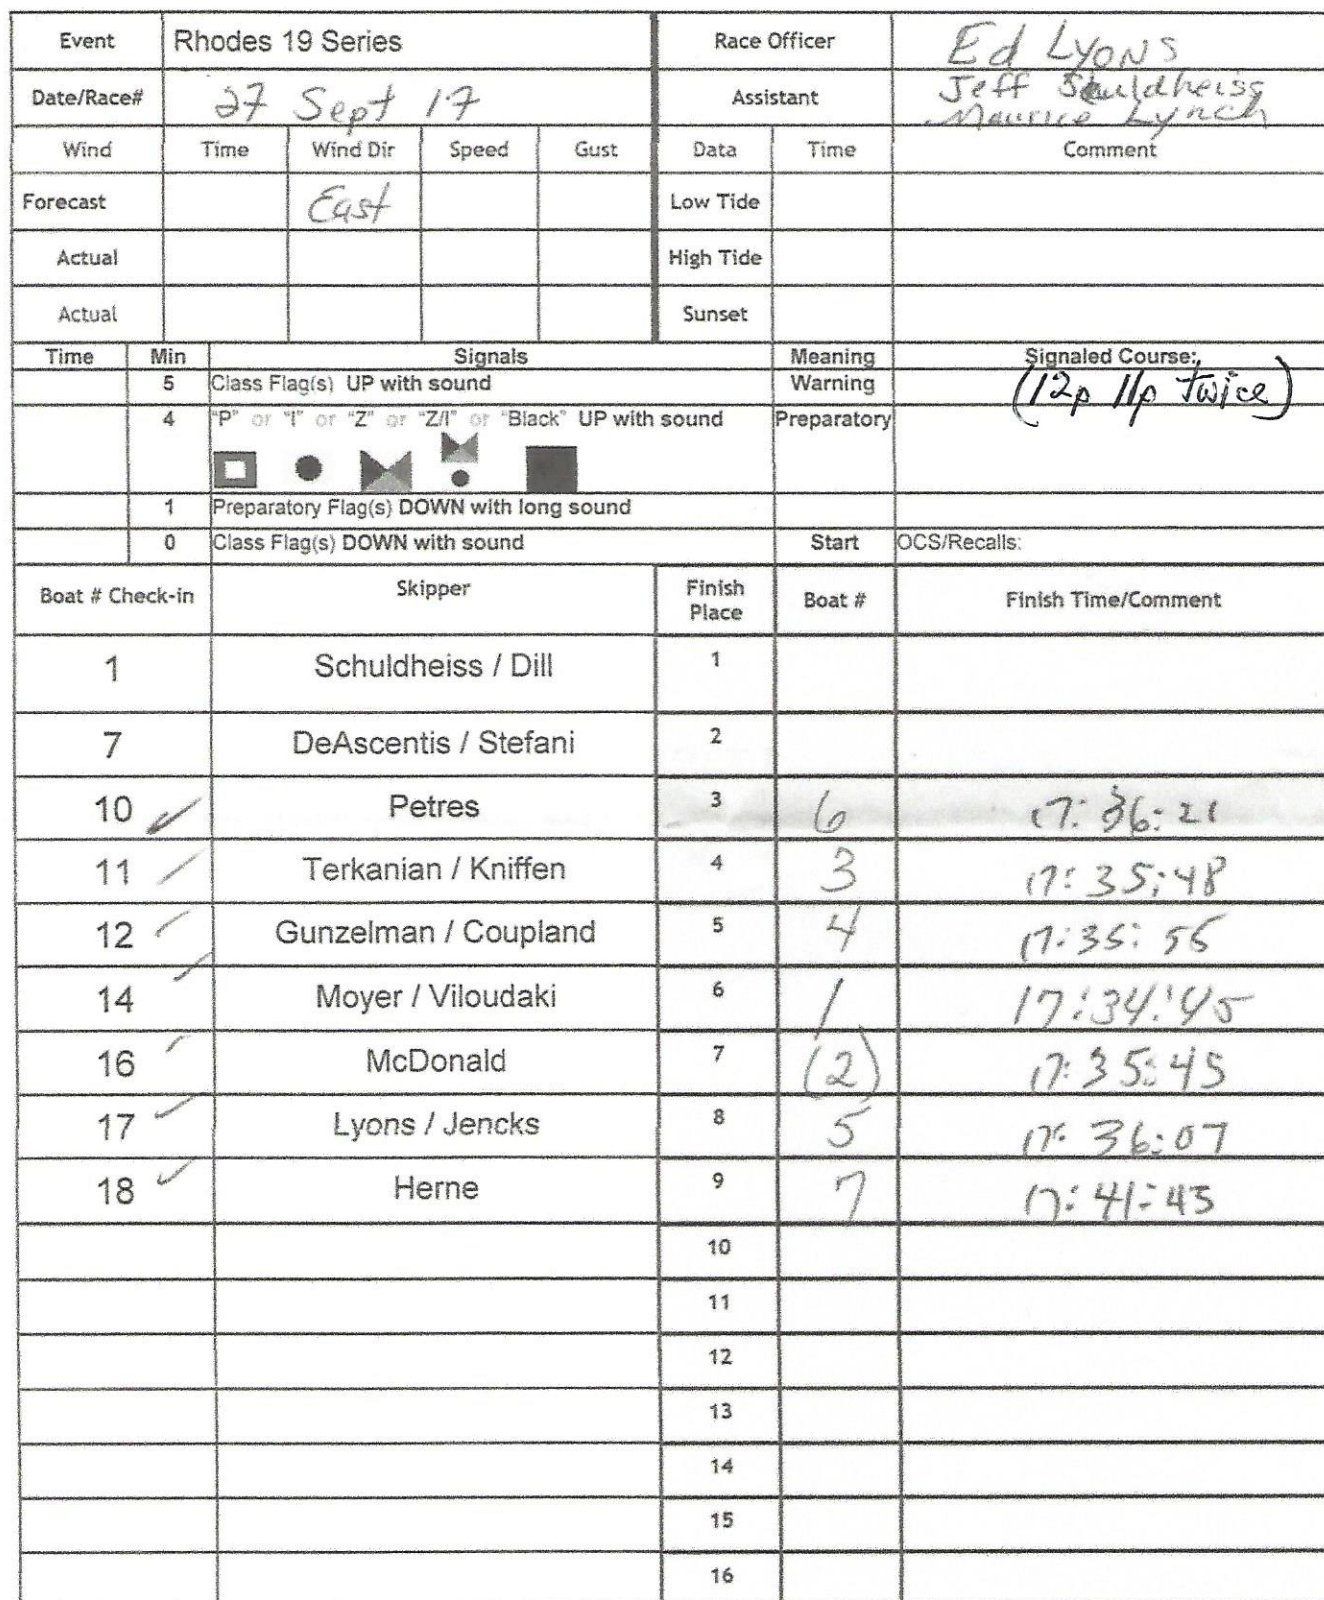 Event Rhodes 19 Series Race Officer Ed Lyons
Date/Race# 27 Sept 17 Assistant Jeff Schuldheiss
Maurice Lynch
Wind Time Wind Dir Speed Gust Data Time Comment
Forecast East Low Tide
Actual High Tide
Actual Sunset
Time Min Signals Meaning Signaled Course:
5 Class Flag(s) UP with sound Warning (12p 11p twice)
4 "P" or "I" or "Z" or "Z/I" or "Black" UP with sound Preparatory
1 Preparatory Flag(s) DOWN with long sound
0 Class Flag(s) DOWN with sound Start OCS/Recalls:
Boat # Check-in Skipper Finish Place Boat # Finish Time/Comment
1 Schuldheiss / Dill 1
7 DeAscentis / Stefani 2
10 ✓ Petres 3 6 17:36:21
11 Terkanian / Kniffen 4 3 17:35:48
12 Gunzelman / Coupland 5 4 17:35:56
14 Moyer / Viloudaki 6 1 17:34:45
16 McDonald 7 (2) 17:35:45
17 ✓ Lyons / Jencks 8 5 17:36:07
18 ✓ Herne 9 7 17:41:43
10
11
12
13
14
15
16